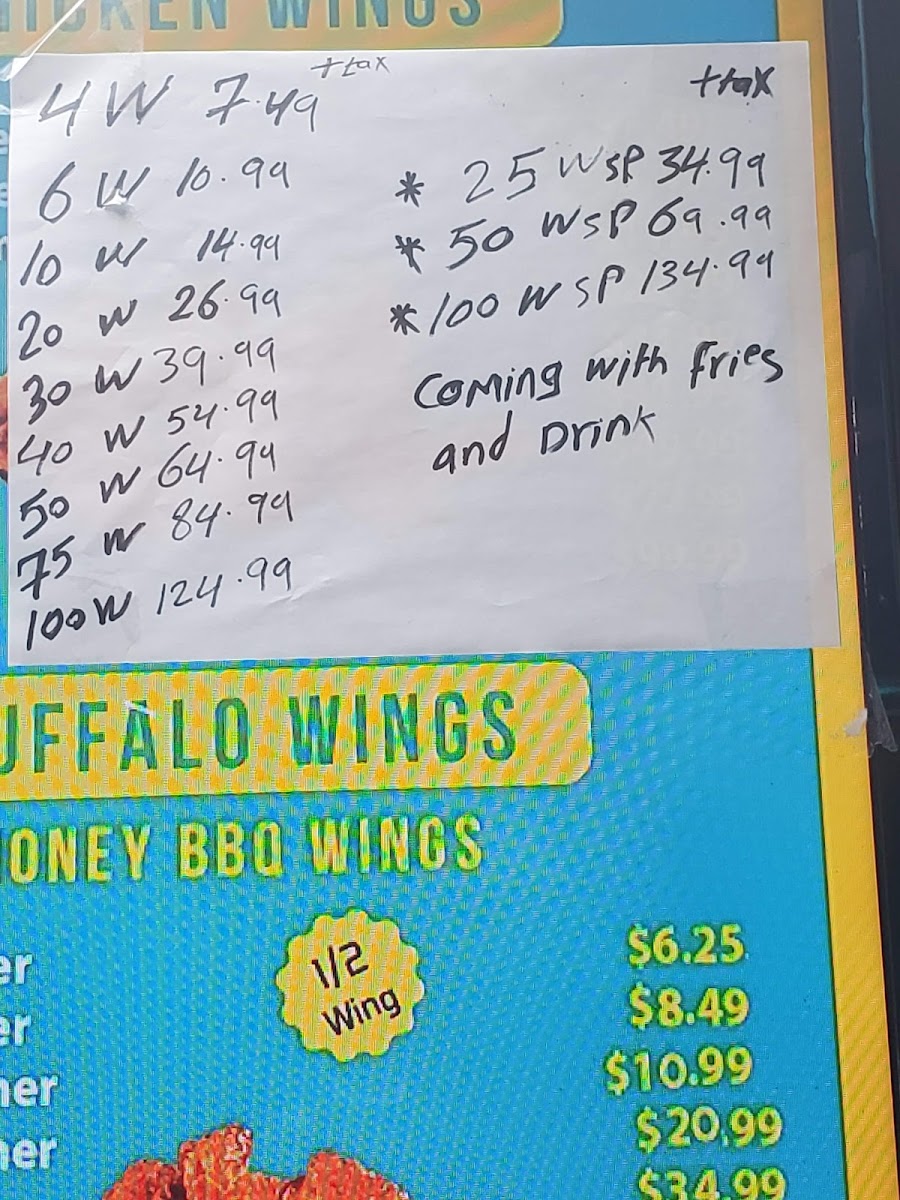 WINGS
4 W 7.49 +tax
6 W 10.99
10 W 14.99
20 W 26.99
30 W 39.99
40 W 54.99
50 W 64.99
75 W 84.99
100 W 124.99
+tax
* 25 WSP 34.99
* 50 WSP 69.99
* 100 WSP 134.99
Coming with fries
and Drink
UFFALO WINGS
ONEY BBQ WINGS
1/2
Wing
er $6.25
er $8.49
ner $10.99
ner $20.99
$34.99